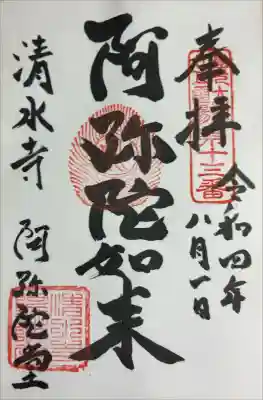 奉拝
令和四年
八月一日
阿弥陀如来
清水寺
阿弥陀堂